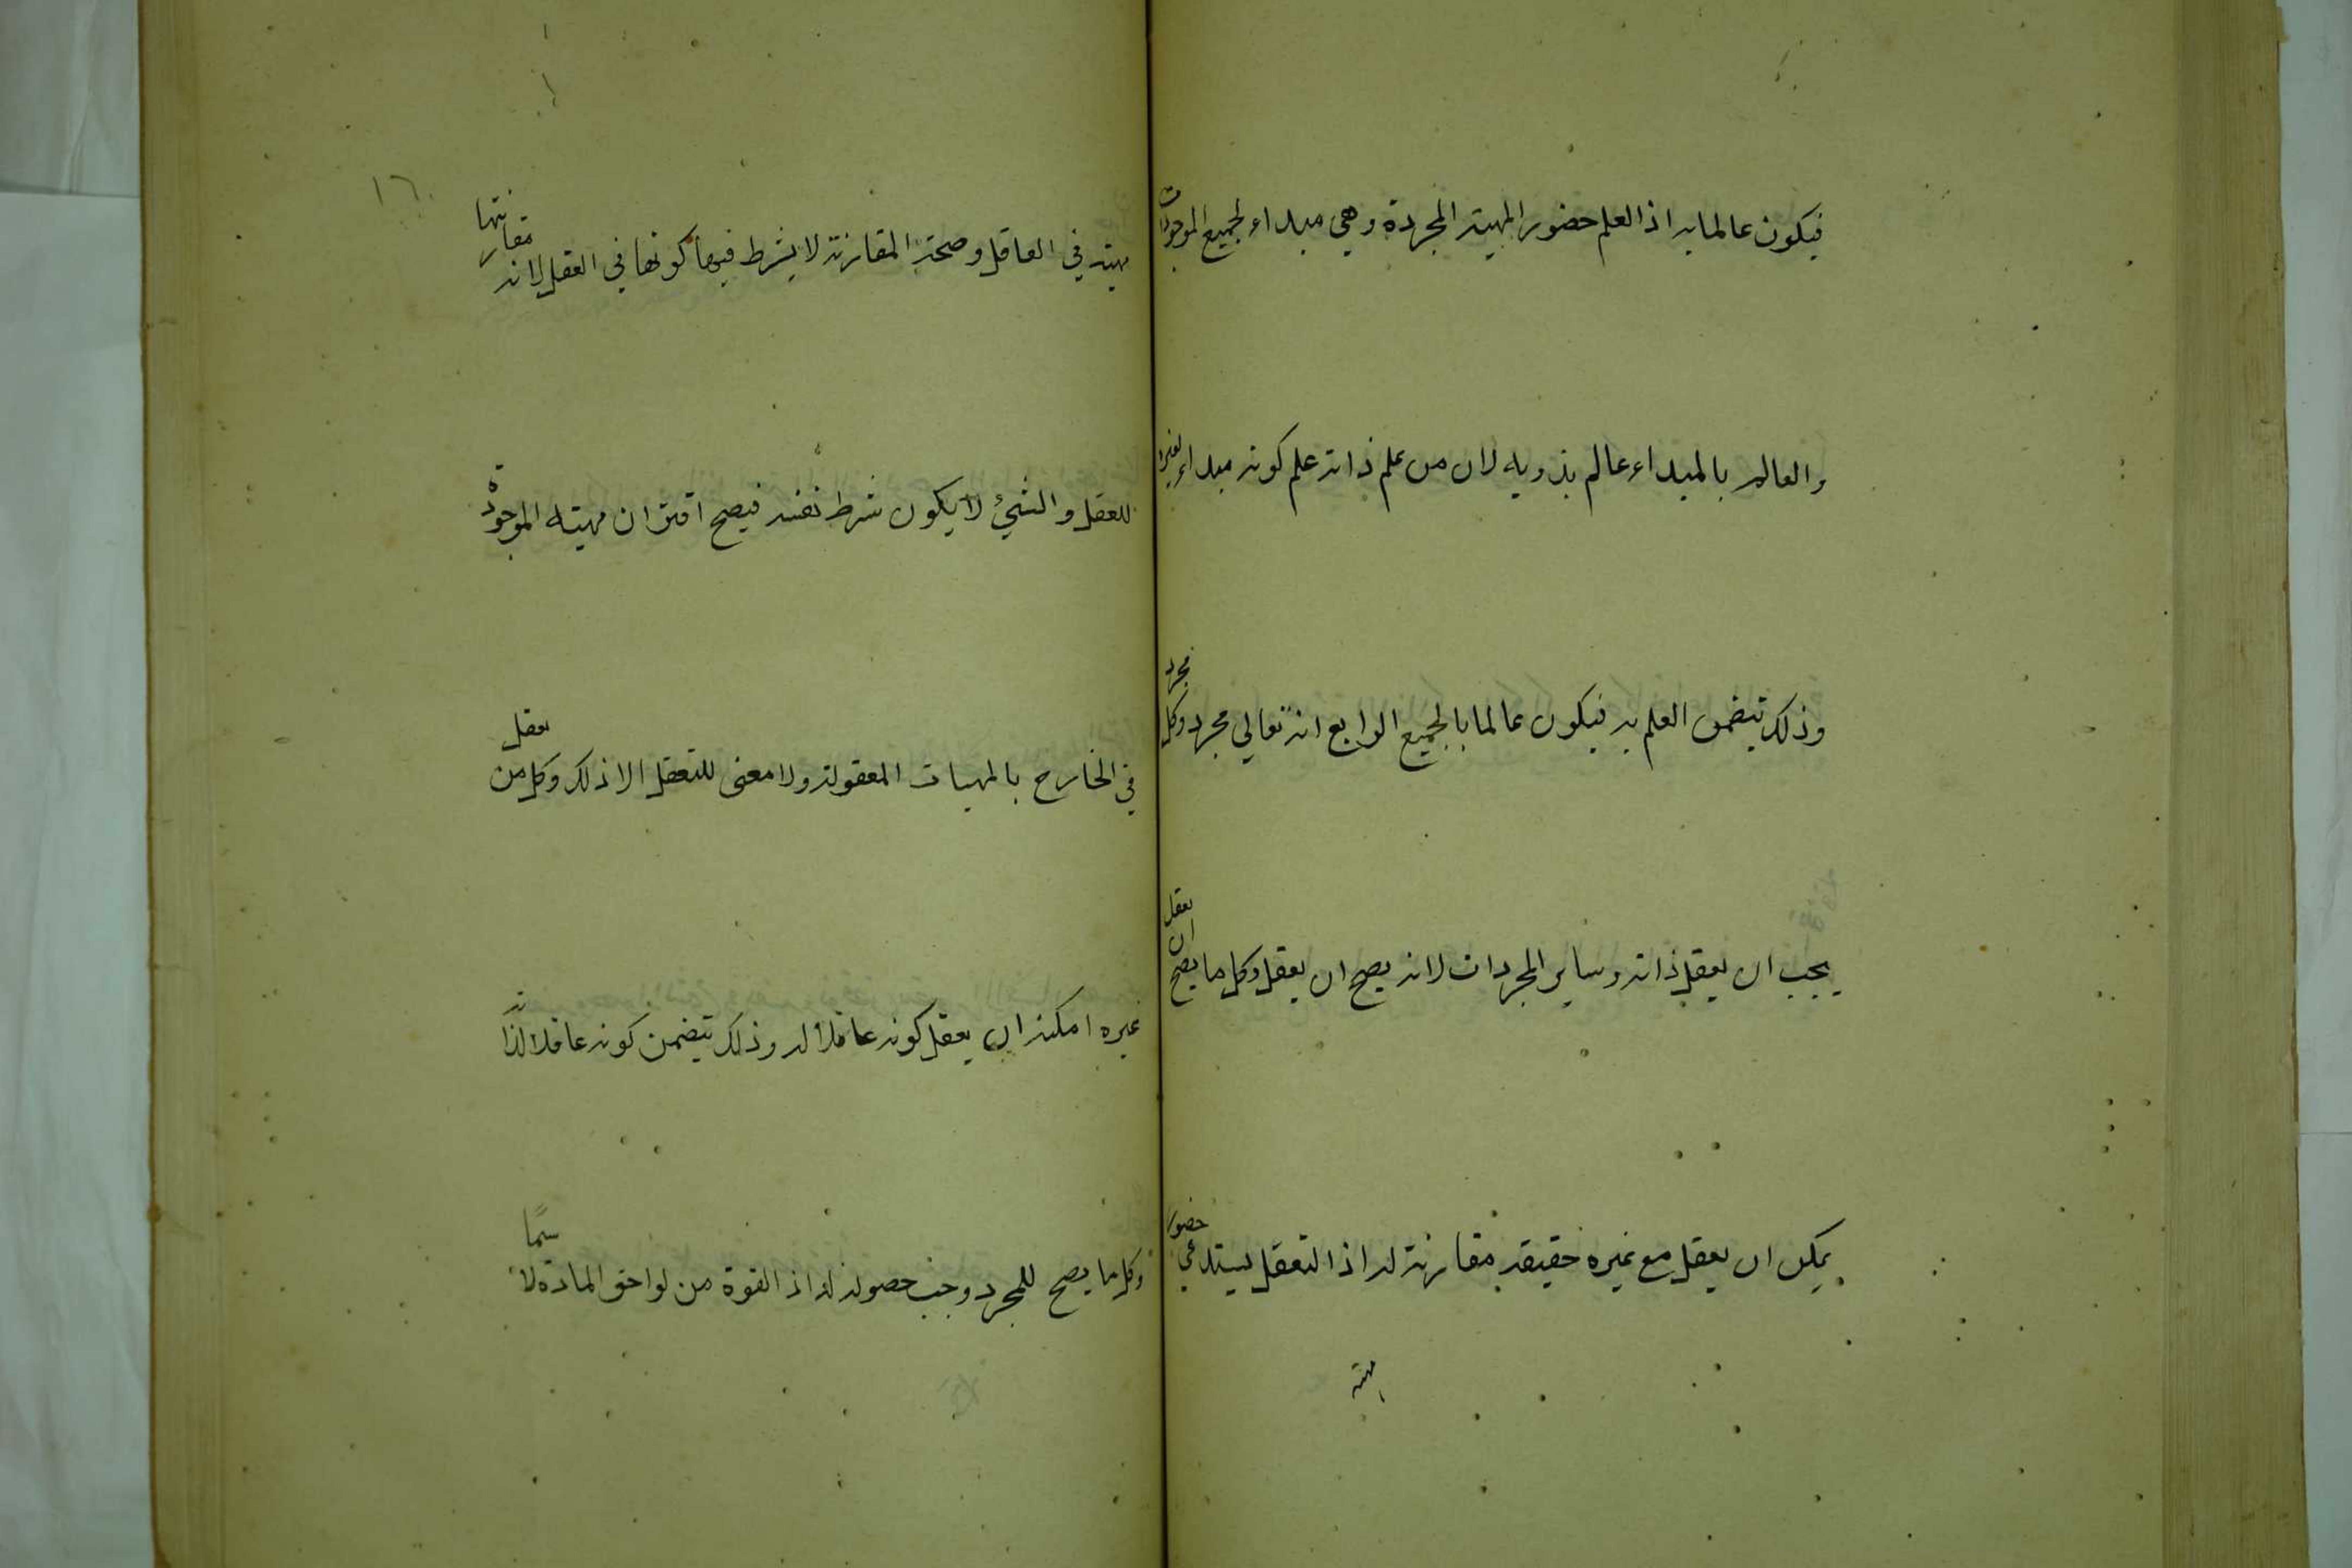 فيكون عالما به اذ العلم حضور المهية المجردة وهي مبداء لجميع الموجودات
والعالم بالمبداء عالم بذويه لان من علم ذاته علم كونه مبداء لغيره
وذلك يتضمن العلم به فيكون عالما بالجميع الرابع انه تعالي مجرد وكل مجرد
يجب ان يعقل ذاته وساير المجردات لانه يصح ان يعقل وكل ما يصح ان يعقل
يمكن ان يعقل مع غيره حقيقة مقارنة له اذ التعقل يستدعي حضور
مهية
١٦
مهية في العاقل وصحة المقارنة لا يشرط فيها كونها في العقل لانه مقارنتها
للعقل والشئ لا يكون شرط نفسه فيصح اقتران مهيته الموجودة
في الخارج بالمهيات المعقولة ولا معنى للتعقل الا ذلك وكل من يعقل
غيره امكنه ان يعقل كونه عاقلا له وذلك يتضمن كونه عاقلا لذاته
وكل ما يصح للمجرد وجب حصوله له اذ القوة من لواحق المادة لا سيما